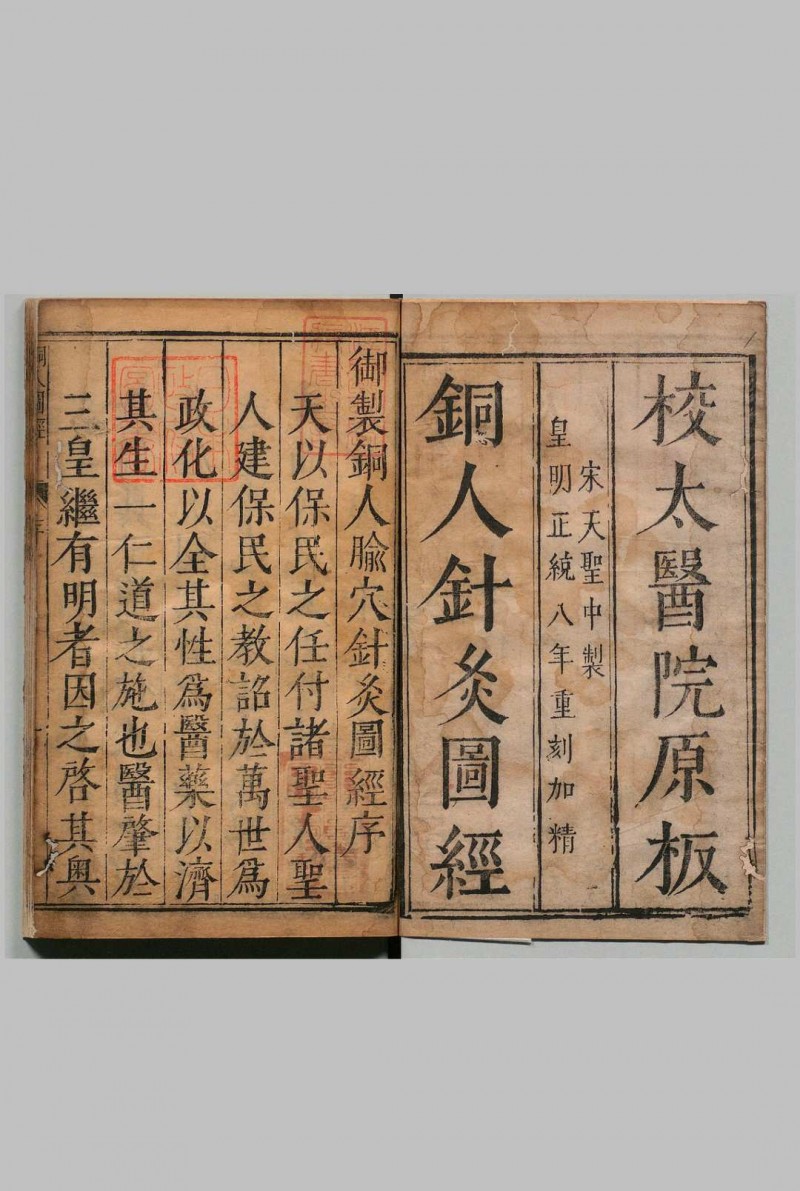 校太醫院原板
宋天聖中製
皇明正統八年重刻加精
銅人針灸圖經
御製銅人腧穴針灸圖經序
天以保民之任付諸聖人聖
人建保民之教詔於萬世爲
政化以全其性爲醫藥以濟
其生一仁道之施也醫肇於
三皇繼有明者因之啓其奧
銅人圖經
序